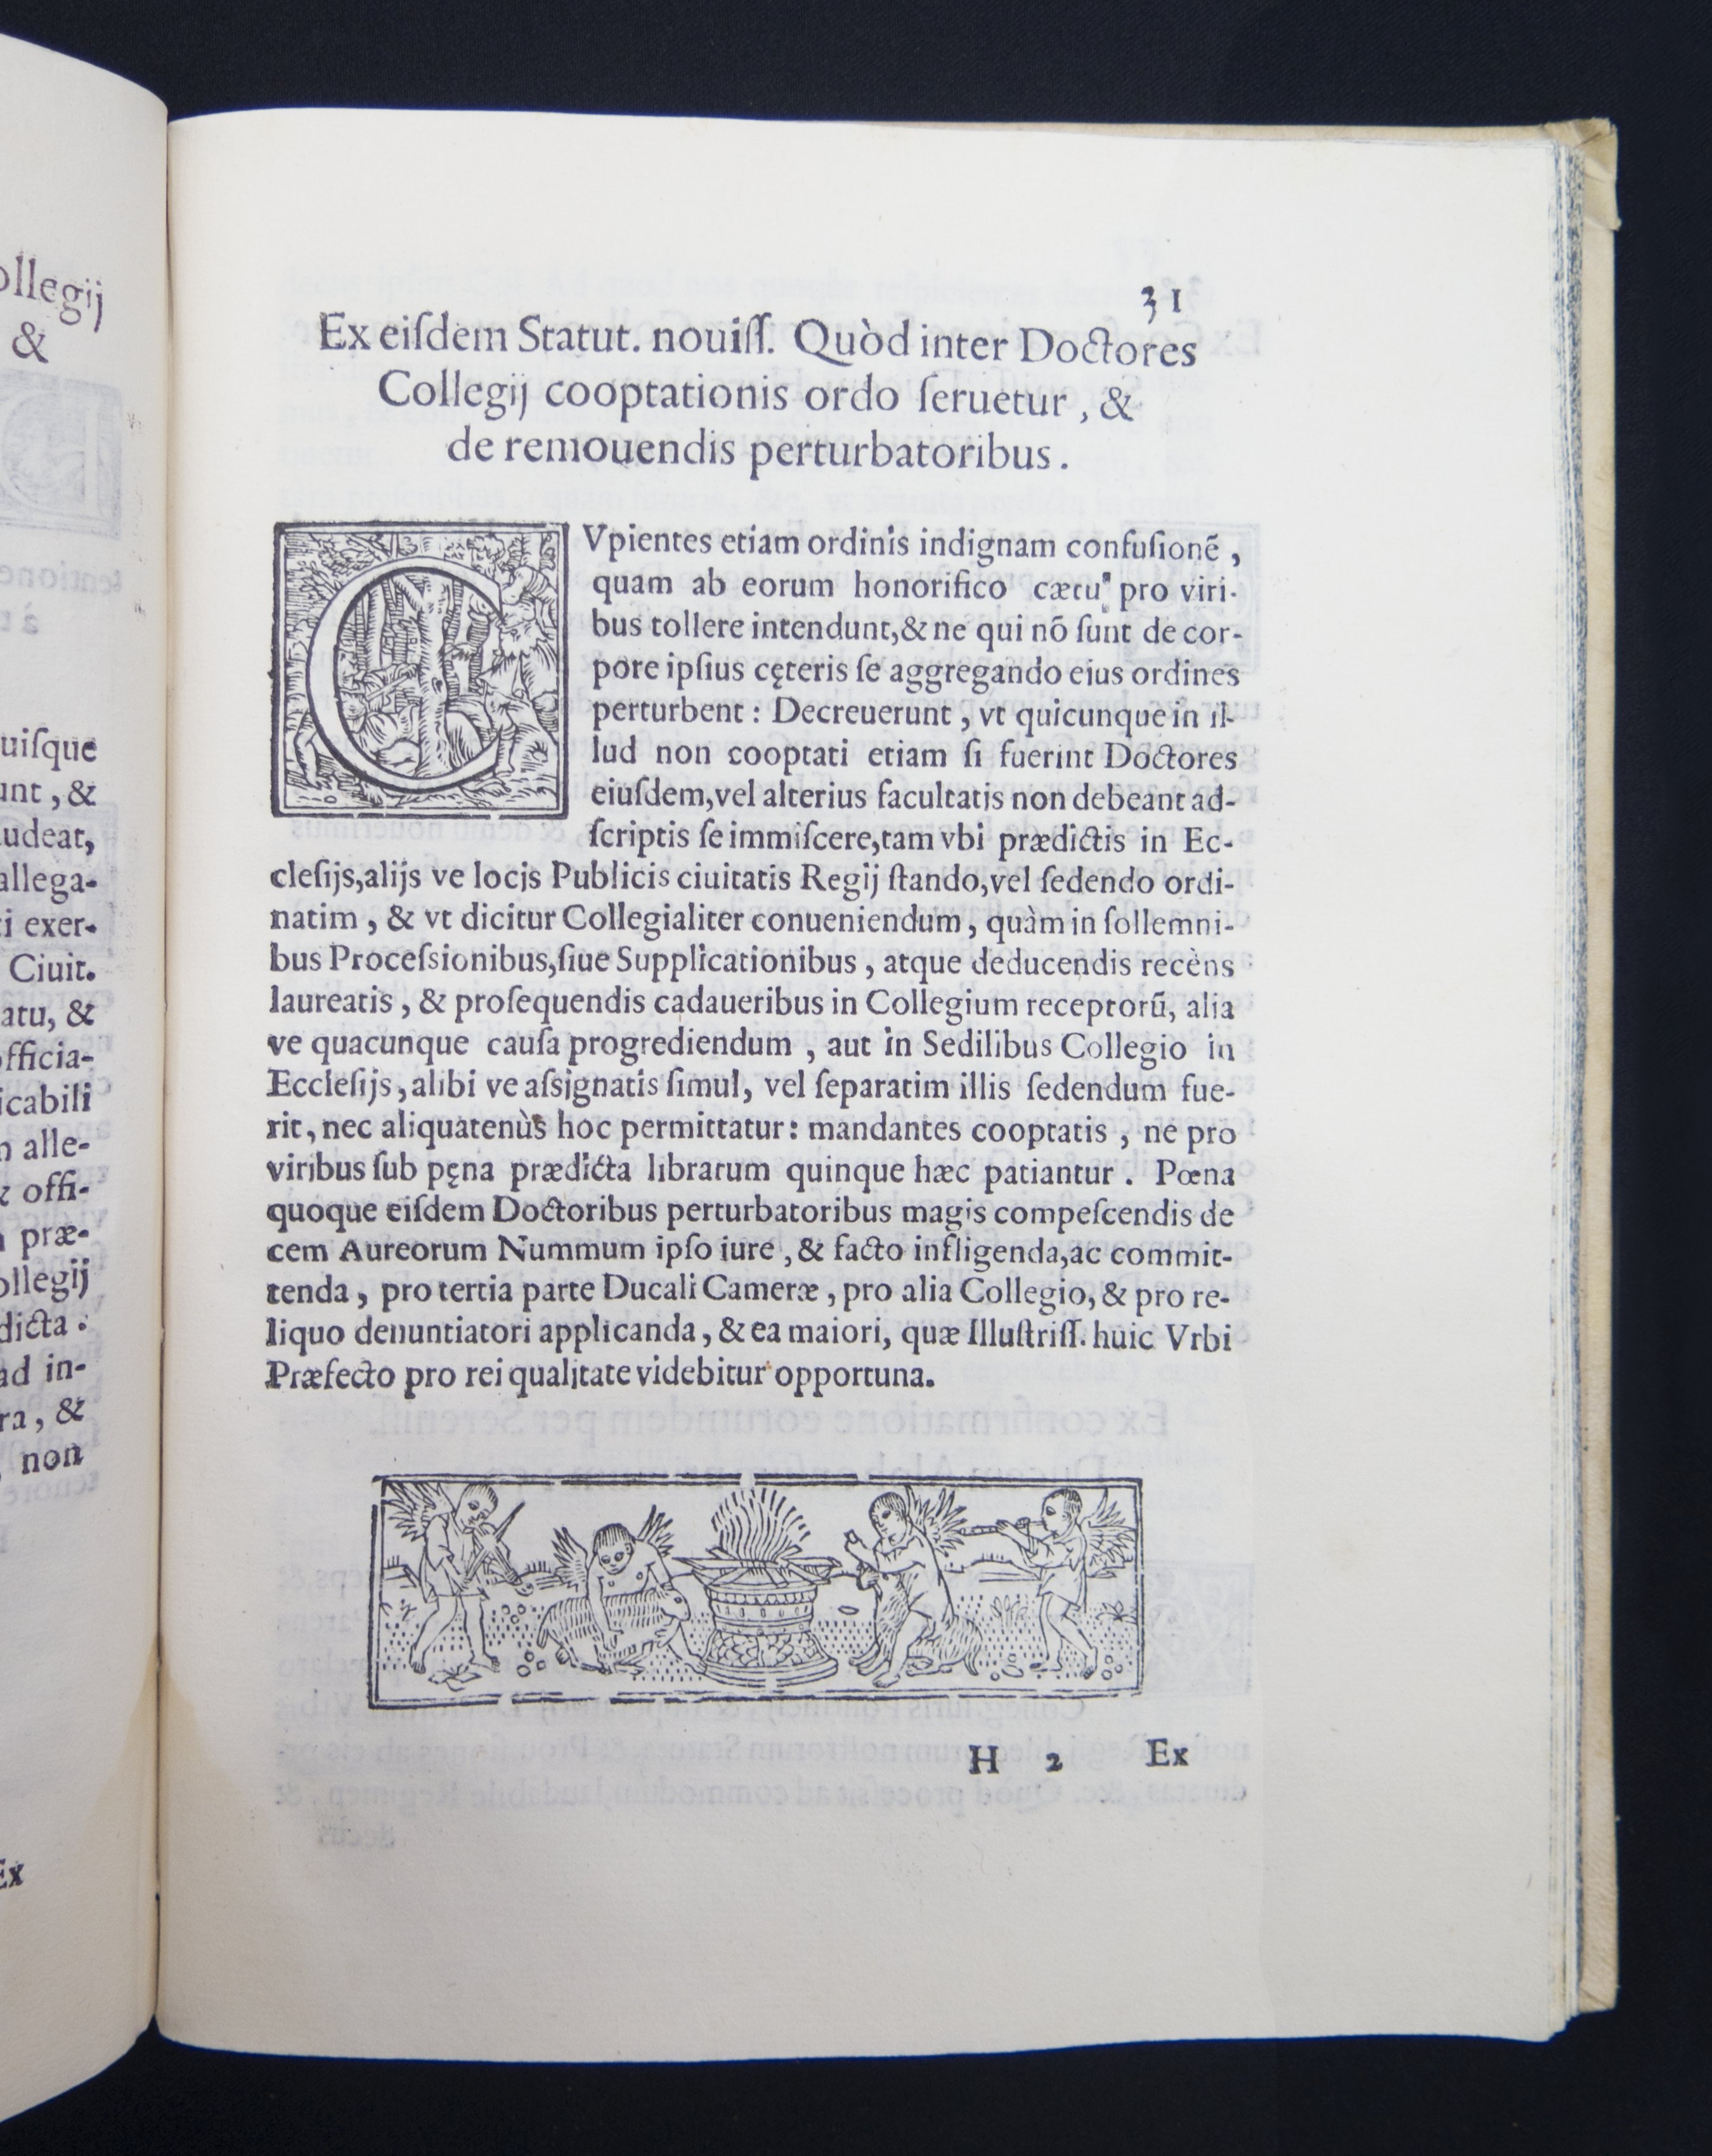 ollegij
&
uiſque
unt, &
udeat,
allega-
ti exer-
Ciuit.
atu, &
officia-
icabili
alle-
& offi-
præ-
ollegij
dicta:
ad in-
ra, &
non
Ex
31
Ex eiſdem Statut. nouiſſ. Quòd inter Doctores
Collegij cooptationis ordo ſeruetur, &
de remouendis perturbatoribus.
CVpientes etiam ordinis indignam confuſionẽ,
quam ab eorum honorifico cætu pro viri-
bus tollere intendunt,& ne qui nõ ſunt de cor-
pore ipſius cęteris ſe aggregando eius ordines
perturbent: Decreuerunt, vt quicunque in il-
lud non cooptati etiam ſi fuerint Doctores
eiuſdem,vel alterius facultatis non debeant ad-
ſcriptis ſe immiſcere,tam vbi prædictis in Ec-
cleſijs,alijs ve locis Publicis ciuitatis Regij ſtando,vel ſedendo ordi-
natim, & vt dicitur Collegialiter conueniendum, quàm in ſollemni-
bus Proceſsionibus,ſiue Supplicationibus, atque deducendis recèns
laureatis, & proſequendis cadaueribus in Collegium receptorũ, alia
ve quacunque cauſa progrediendum, aut in Sedilibus Collegio in
Eccleſijs, alibi ve aſsignatis ſimul, vel ſeparatim illis ſedendum fue-
rit, nec aliquatenùs hoc permittatur: mandantes cooptatis, ne pro
viribus ſub pęna prædicta librarum quinque hæc patiantur. Pœna
quoque eiſdem Doctoribus perturbatoribus magis compeſcendis de
cem Aureorum Nummum ipſo iure, & facto infligenda,ac commit-
tenda, pro tertia parte Ducali Cameræ, pro alia Collegio, & pro re-
liquo denuntiatori applicanda, & ea maiori, quæ Illuſtriſſ. huic Vrbi
Præfecto pro rei qualitate videbitur opportuna.
H 2 Ex